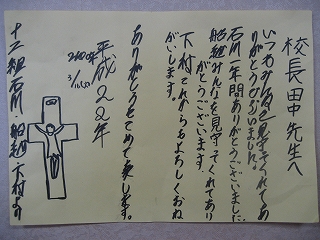 校長田中先生へ
いつもみんなを見守ってくれてあ
りがとうございました。
石川一年間ありがとうございました
船越みんなを見守ってくれてあり
がとうございます。
下村これからもよろしくおね
がいします。
平成22年
3/
ありがとうをこめて
十二組石川・船越・下村より